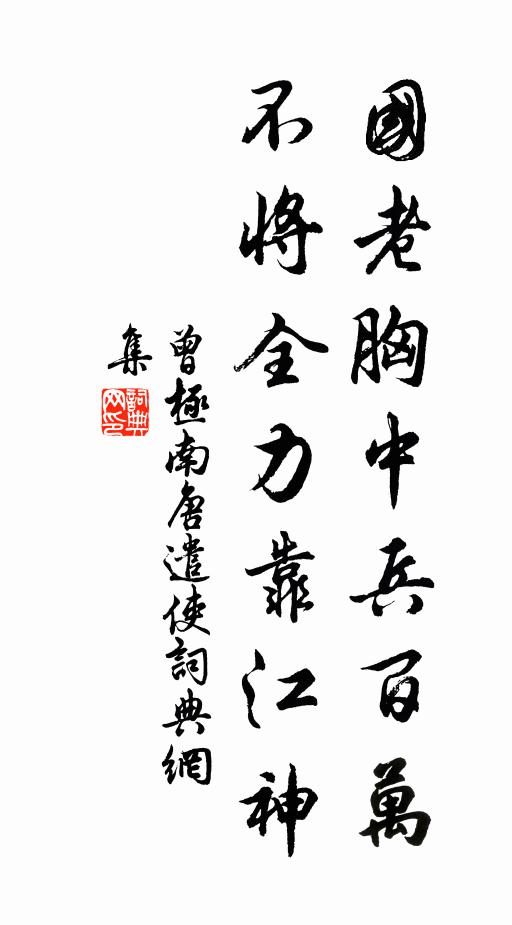 國老胸中兵百萬
不將全力靠江神
曾極南唐遣使詞典網
集
詞典网印